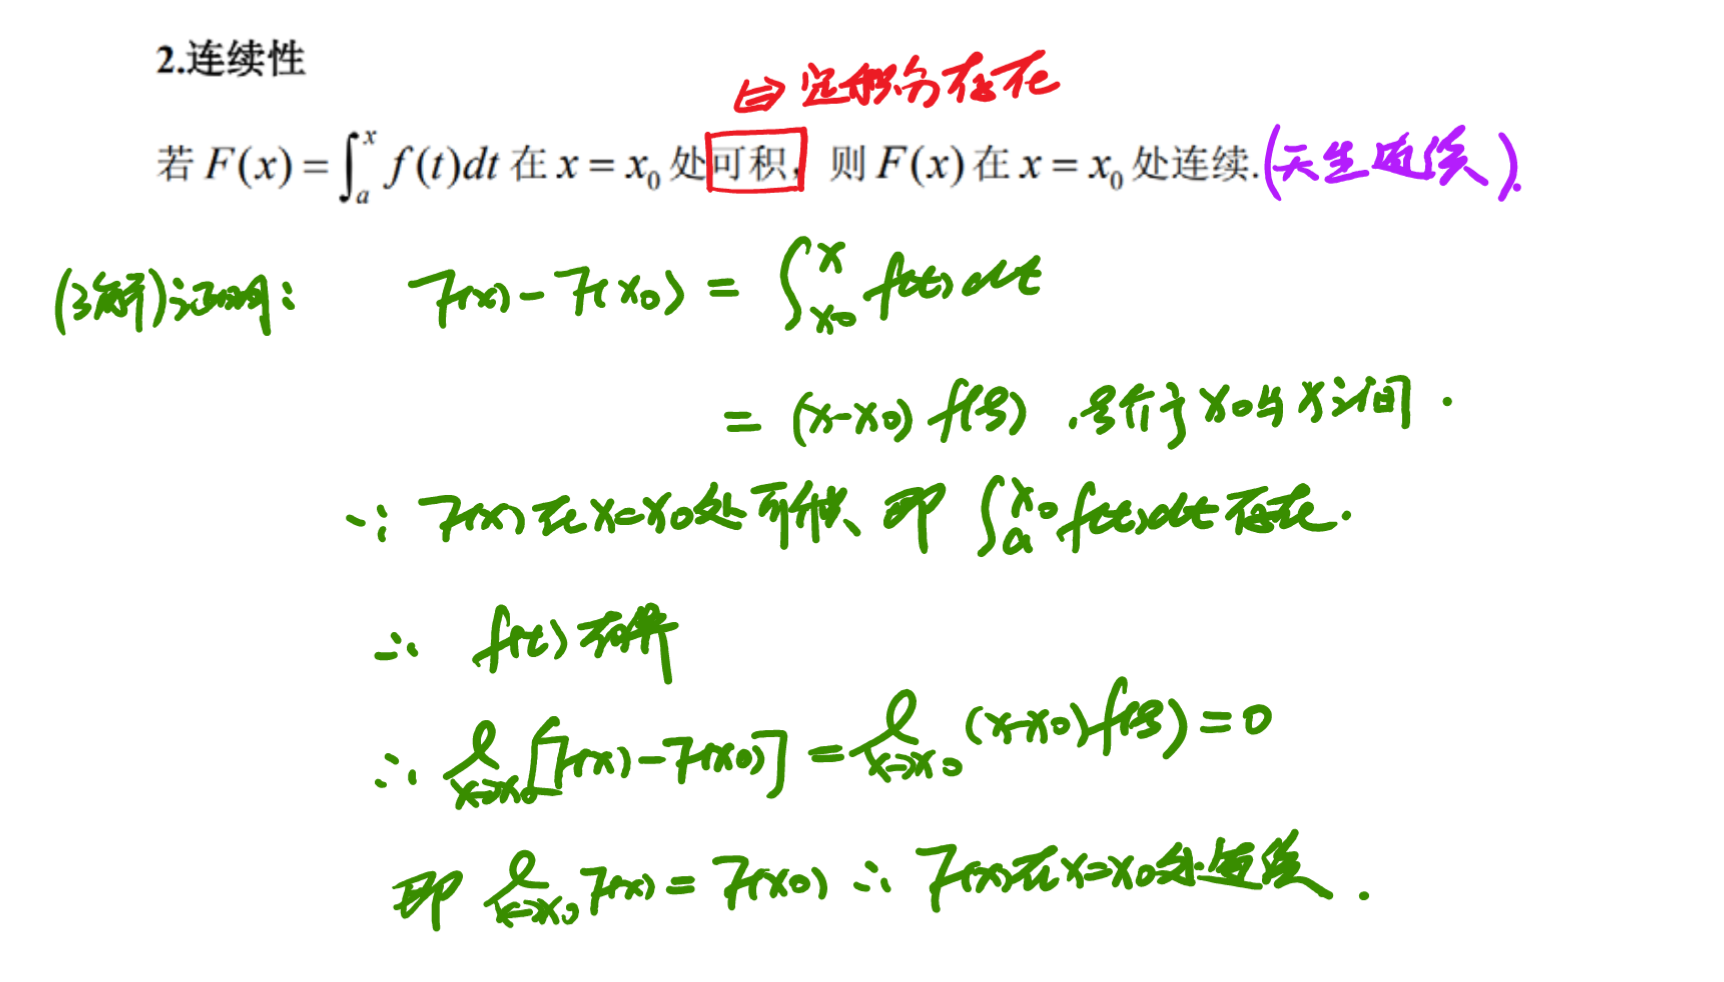 2.连续性
⇔ 定积分存在
若 F(x) = ∫_a^x f(t)dt 在 x = x₀ 处可积, 则 F(x) 在 x = x₀ 处连续. (天生连续).
(了解)证明: F(x) - F(x₀) = ∫_{x₀}^x f(t)dt
= (x-x₀) f(ξ) , ξ介于 x₀与 x之间.
∵ F(x)在x=x₀处可积、即 ∫_a^{x₀} f(t)dt 存在.
∴ f(t)有界
∴ lim_{x→x₀} [F(x) - F(x₀)] = lim_{x→x₀} (x-x₀) f(ξ) = 0
即 lim_{x→x₀} F(x) = F(x₀) ∴ F(x)在x=x₀处连续.